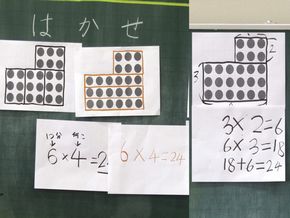 はかせ
6×4=24
6×4=24
3
2
3×2=6
6×3=18
18+6=24